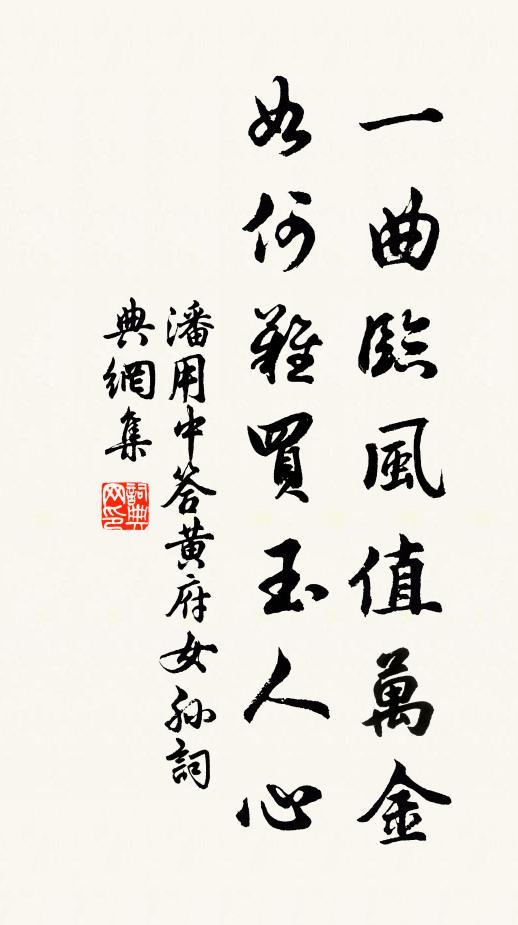 一曲臨風值萬金
如何難買玉人心
潘用中答黃府女孫詞
典網集
詞典網印